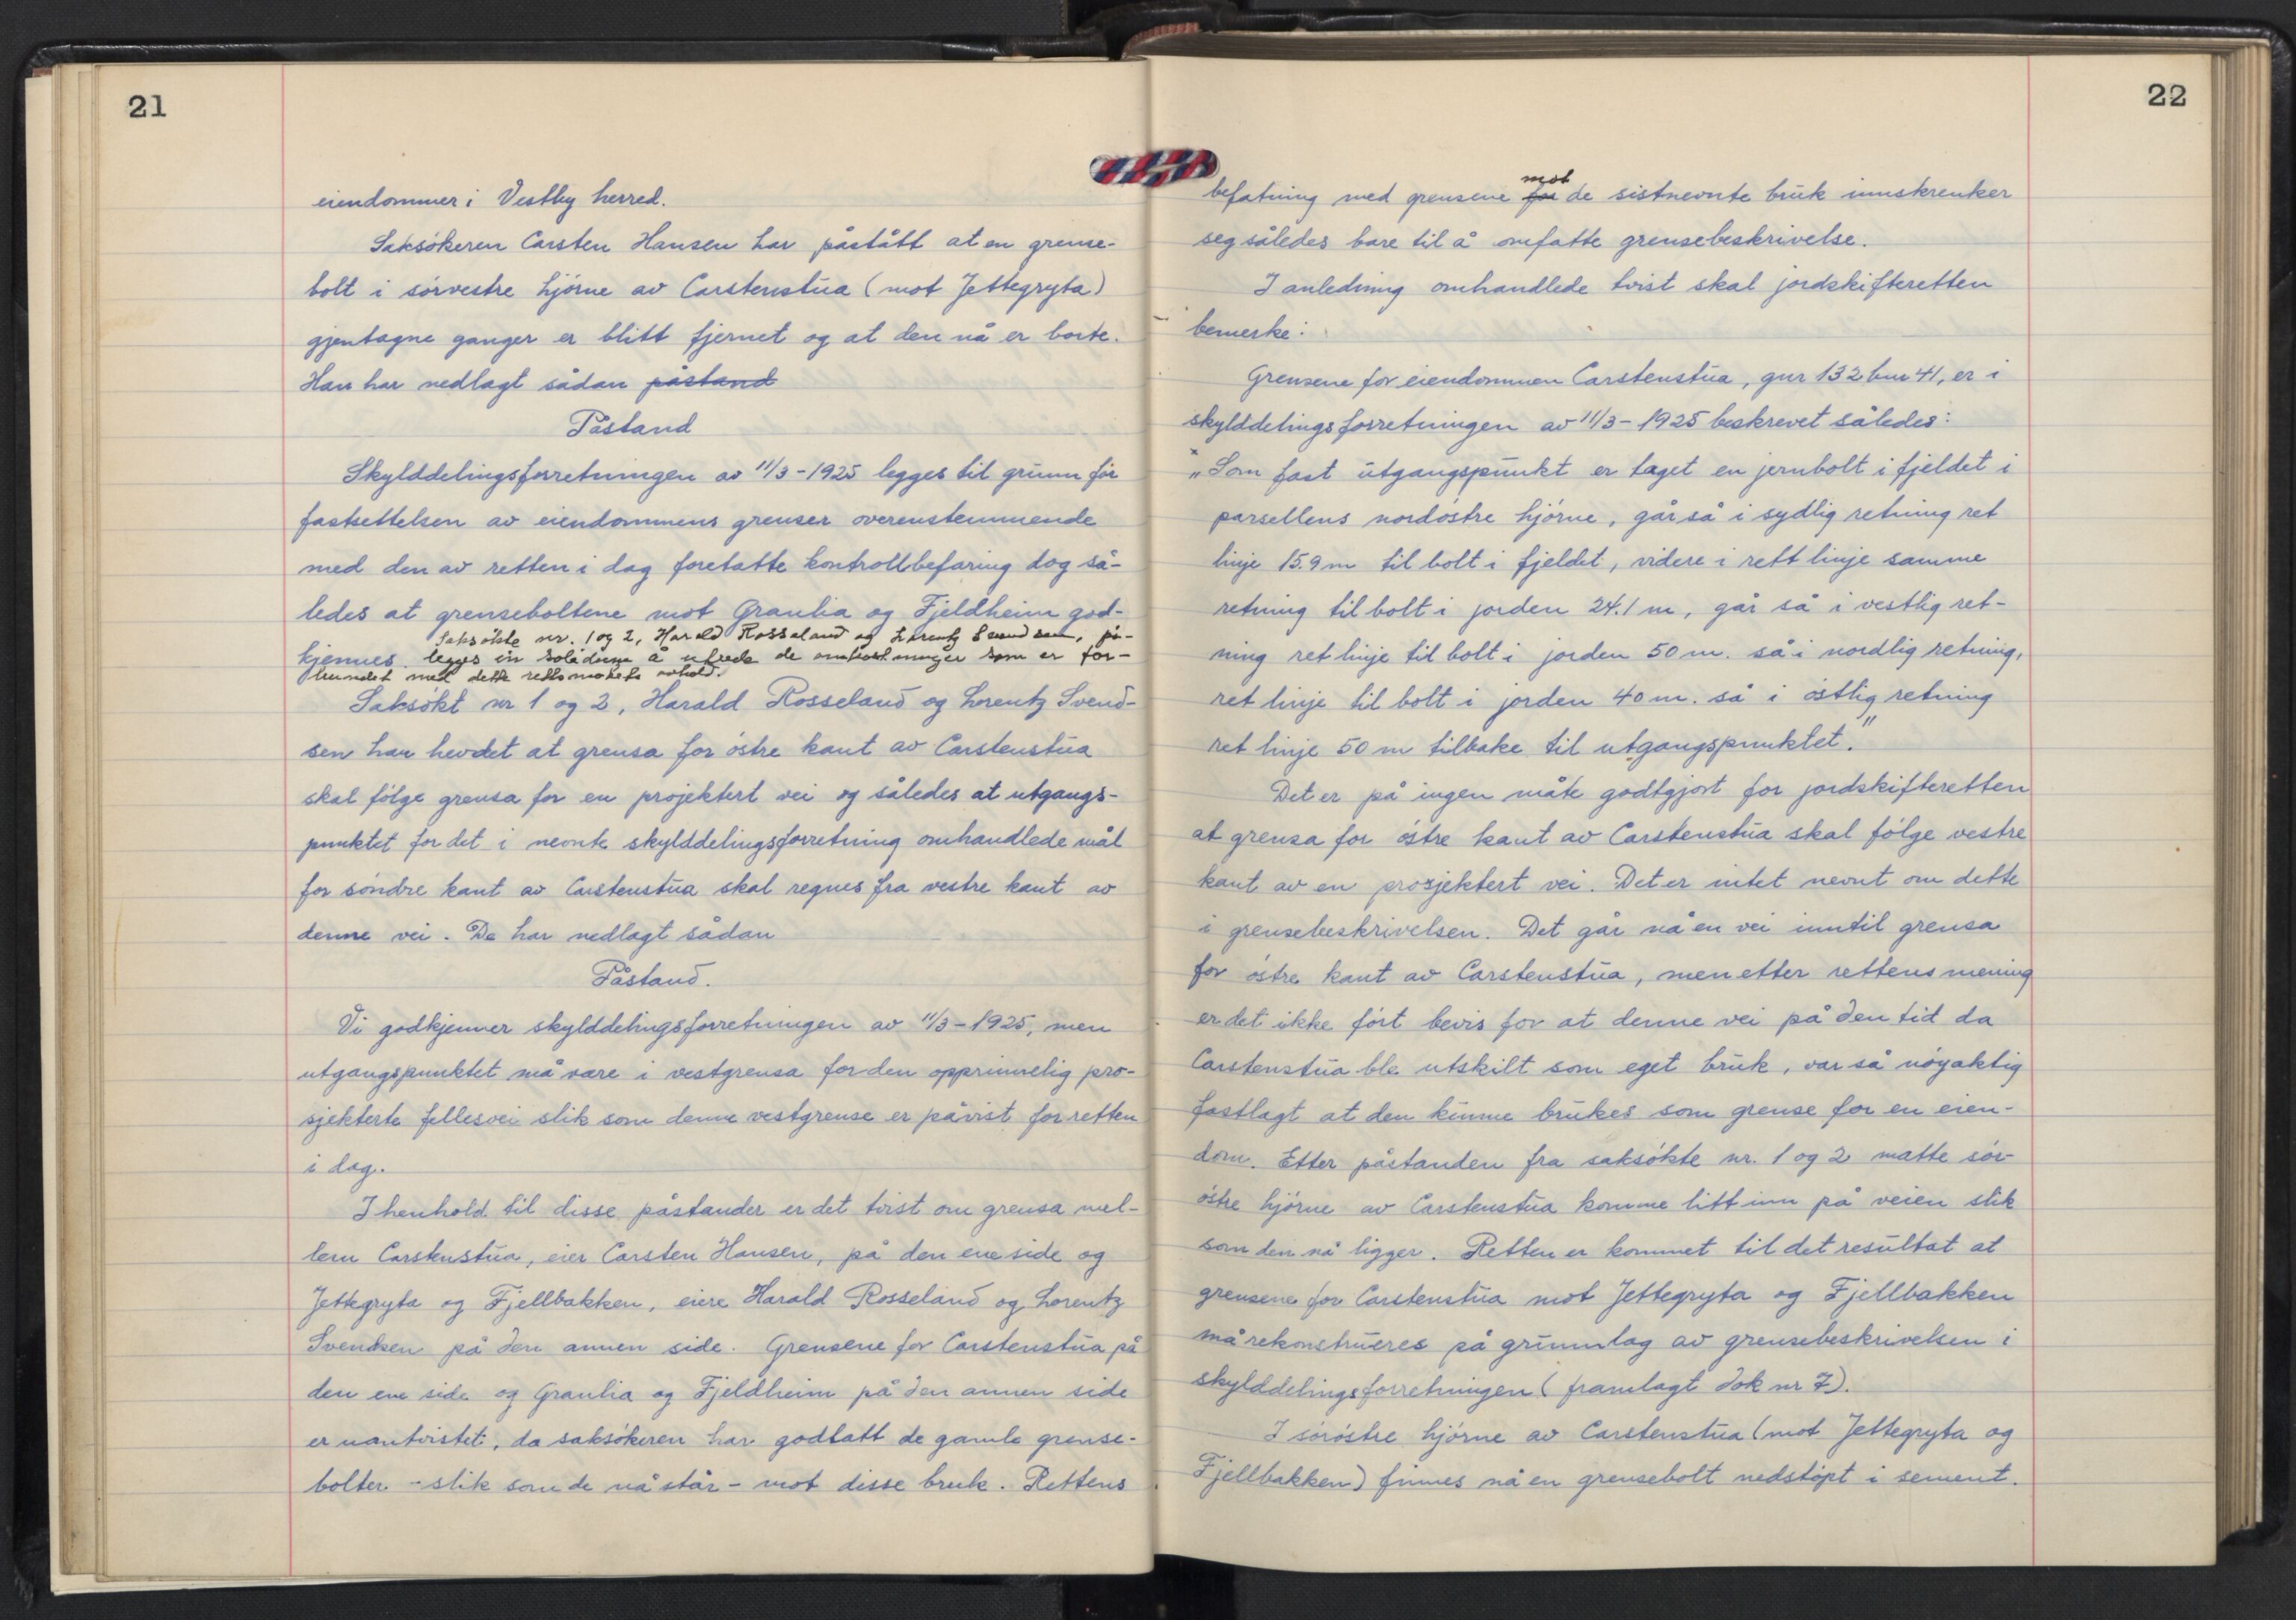 21
eiendommer i Vestby herred.
Saksökeren Carsten Hansen har påstått at en grense-
bolt i sörvestre hjörne av Carstenstua (mot Jettegryta)
gjentagne ganger er blitt fjernet og at den nå er borte.
Han har nedlagt sådan påstand
Påstand
Skylddelingsforretningen av 11/3-1925 legges til grunn for
fastsettelsen av eiendommens grenser overenstemmende
med den av retten i dag foretatte kontrollbefaring dog så-
ledes at grenseboltene mot Granlia og Fjeldheim god-
Saksökte nr. 1 og 2, Harald Rosseland og Lorentz Svendsen, på-
kjennes. legges in solidum å utrede de omkostninger som er for-
bundet med dette rettsmøtets avhold.
Saksökt nr 1 og 2, Harald Rosseland og Lorentz Svend-
sen har hevdet at grensa for östre kant av Carstenstua
skal fölge grensa for en projektert vei og således at utgangs-
punktet for det i nevnte skylddelingsforretning omhandlede mål
for söndre kant av Carstenstua skal regnes fra vestre kant av
denne vei. De har nedlagt sådan
Påstand.
Vi godkjenner skylddelingsforretningen av 11/3-1925, men
utgangspunktet må være i vestgrensa for den opprinnelig pro-
sjekterte fellesvei slik som denne vestgrense er påvist for retten
i dag.
I henhold til disse påstander er det tvist om grensa mel-
lem Carstenstua, eier Carsten Hansen, på den ene side og
Jettegryta og Fjellbakken, eiere Harald Rosseland og Lorentz
Svendsen på den annen side. Grensene for Carstenstua på
den ene side og Granlia og Fjeldheim på den annen side
er uantvistet, da saksökeren har godtatt de gamle grense-
bolter - slik som de nå står - mot disse bruk. Rettens
22
mot
befatning med grensene for de sistnevnte bruk innskrenker
seg således bare til å omfatte grensebeskrivelse.
I anledning omhandlede tvist skal jordskifteretten
bemerke:
Grensene for eiendommen Carstenstua, gnr 132 bnr 41, er i
skylddelingsforretningen av 11/3-1925 beskrevet således:
"Som fast utgangspunkt er taget en jernbolt i fjeldet i
parsellens nordöstre hjörne, går så i sydlig retning ret
linje 15.9 m til bolt i fjeldet, videre i rett linje samme
retning til bolt i jorden 24.1 m, går så i vestlig ret-
ning ret linje til bolt i jorden 50 m. så i nordlig retning,
ret linje til bolt i jorden 40 m. så i östlig retning
ret linje 50 m tilbake til utgangspunktet."
Det er på ingen måte godtgjort for jordskifteretten
at grensa for östre kant av Carstenstua skal fölge vestre
kant av en prosjektert vei. Det er intet nevnt om dette
i grensebeskrivelsen. Det går nå en vei inntil grensa
for östre kant av Carstenstua, men etter rettens mening
er det ikke fört bevis for at denne vei på den tid da
Carstenstua ble utskilt som eget bruk, var så nöyaktig
fastlagt at den kunne brukes som grense for en eien-
dom. Etter påstanden fra saksökte nr. 1 og 2 matte sör-
östre hjörne av Carstenstua komme litt inn på veien slik
som den nå ligger. Retten er kommet til det resultat at
grensene for Carstenstua mot Jettegryta og Fjellbakken
må rekonstrueres på grunnlag av grensebeskrivelsen i
skylddelingsforretningen (framlagt dok nr 7).
I söröstre hjörne av Carstenstua (mot Jettegryta og
Fjellbakken) finnes nå en grensebolt nedstöpt i sement.